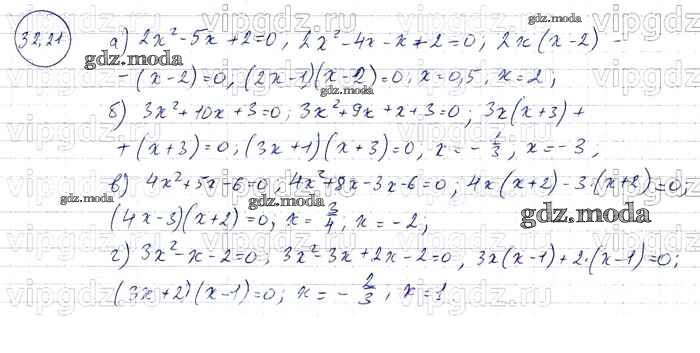 32.21
а) 2x²-5x+2=0, 2x²-4x-x+2=0; 2x(x-2)-
-(x-2)=0, (2x-1)(x-2)=0; x=0,5, x=2;
б) 3x²+10x+3=0; 3x²+9x+x+3=0; 3x(x+3)+
+(x+3)=0; (3x+1)(x+3)=0, x=-1/3, x=-3,
в) 4x²+5x-6=0; 4x²+8x-3x-6=0; 4x(x+2)-3·(x+2)=0;
(4x-3)(x+2)=0, x=3/4, x=-2;
г) 3x²-x-2=0; 3x²-3x+2x-2=0, 3x(x-1)+2·(x-1)=0;
(3x+2)(x-1)=0; x=-2/3, x=1
gdz.moda
gdz.moda
gdz.moda
gdz.moda
gdz.moda
gdz.moda
vipgdz.ru
vipgdz.ru
vipgdz.ru